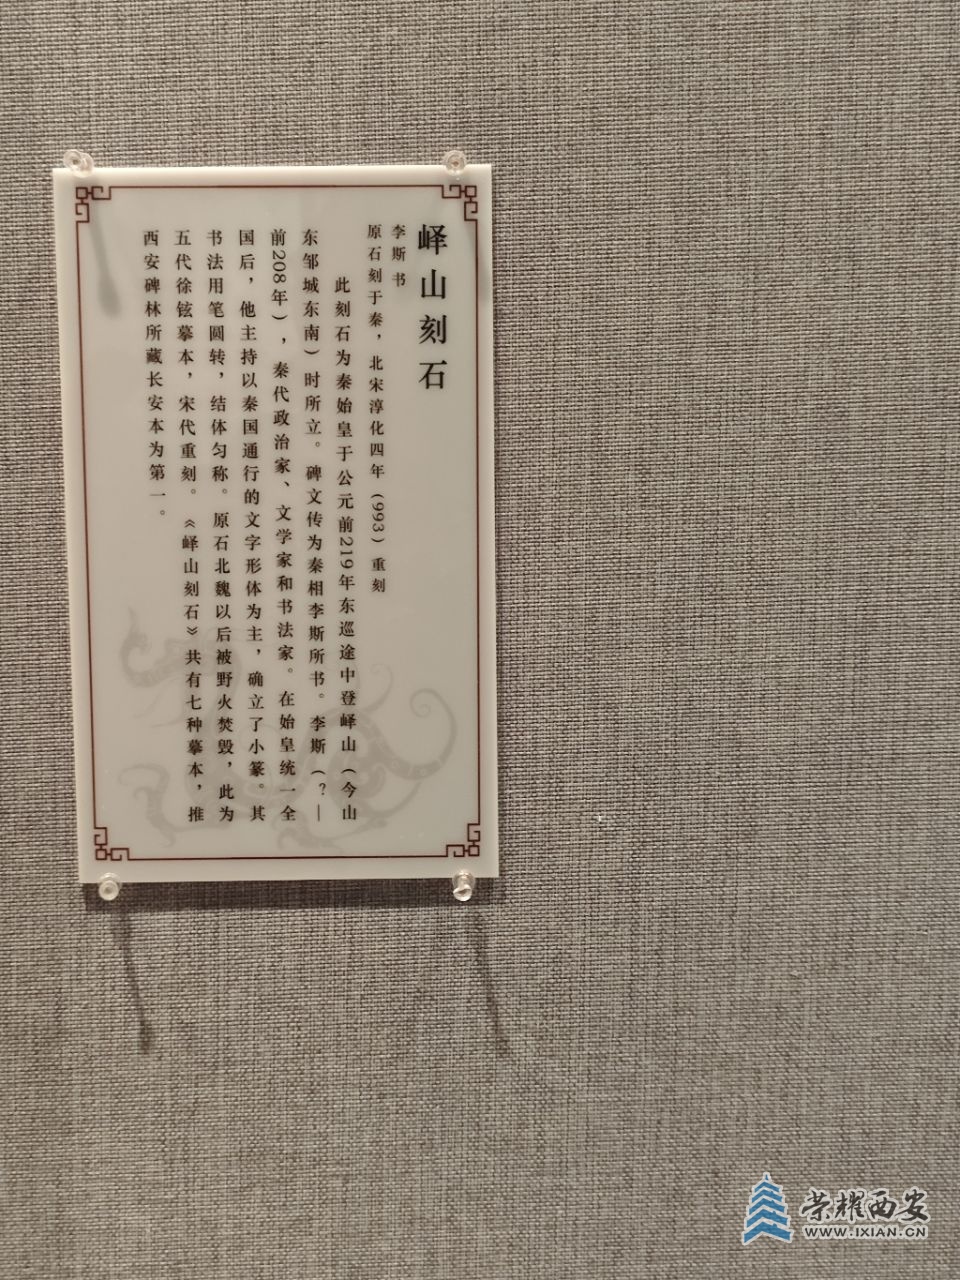 峄山刻石
李斯书
原石刻于秦，北宋淳化四年（993）重刻
此刻石为秦始皇于公元前219年东巡途中登峄山（今山
东邹城东南）时所立。碑文传为秦相李斯所书。李斯（？—
前208年），秦代政治家、文学家和书法家。在始皇统一全
国后，他主持以秦国通行的文字形体为主，确立了小篆。其
书法用笔圆转，结体匀称。原石北魏以后被野火焚毁，此为
五代徐铉摹本，宋代重刻。《峄山刻石》共有七种摹本，推
西安碑林所藏长安本为第一。
荣耀西安
WWW.IXIAN.CN